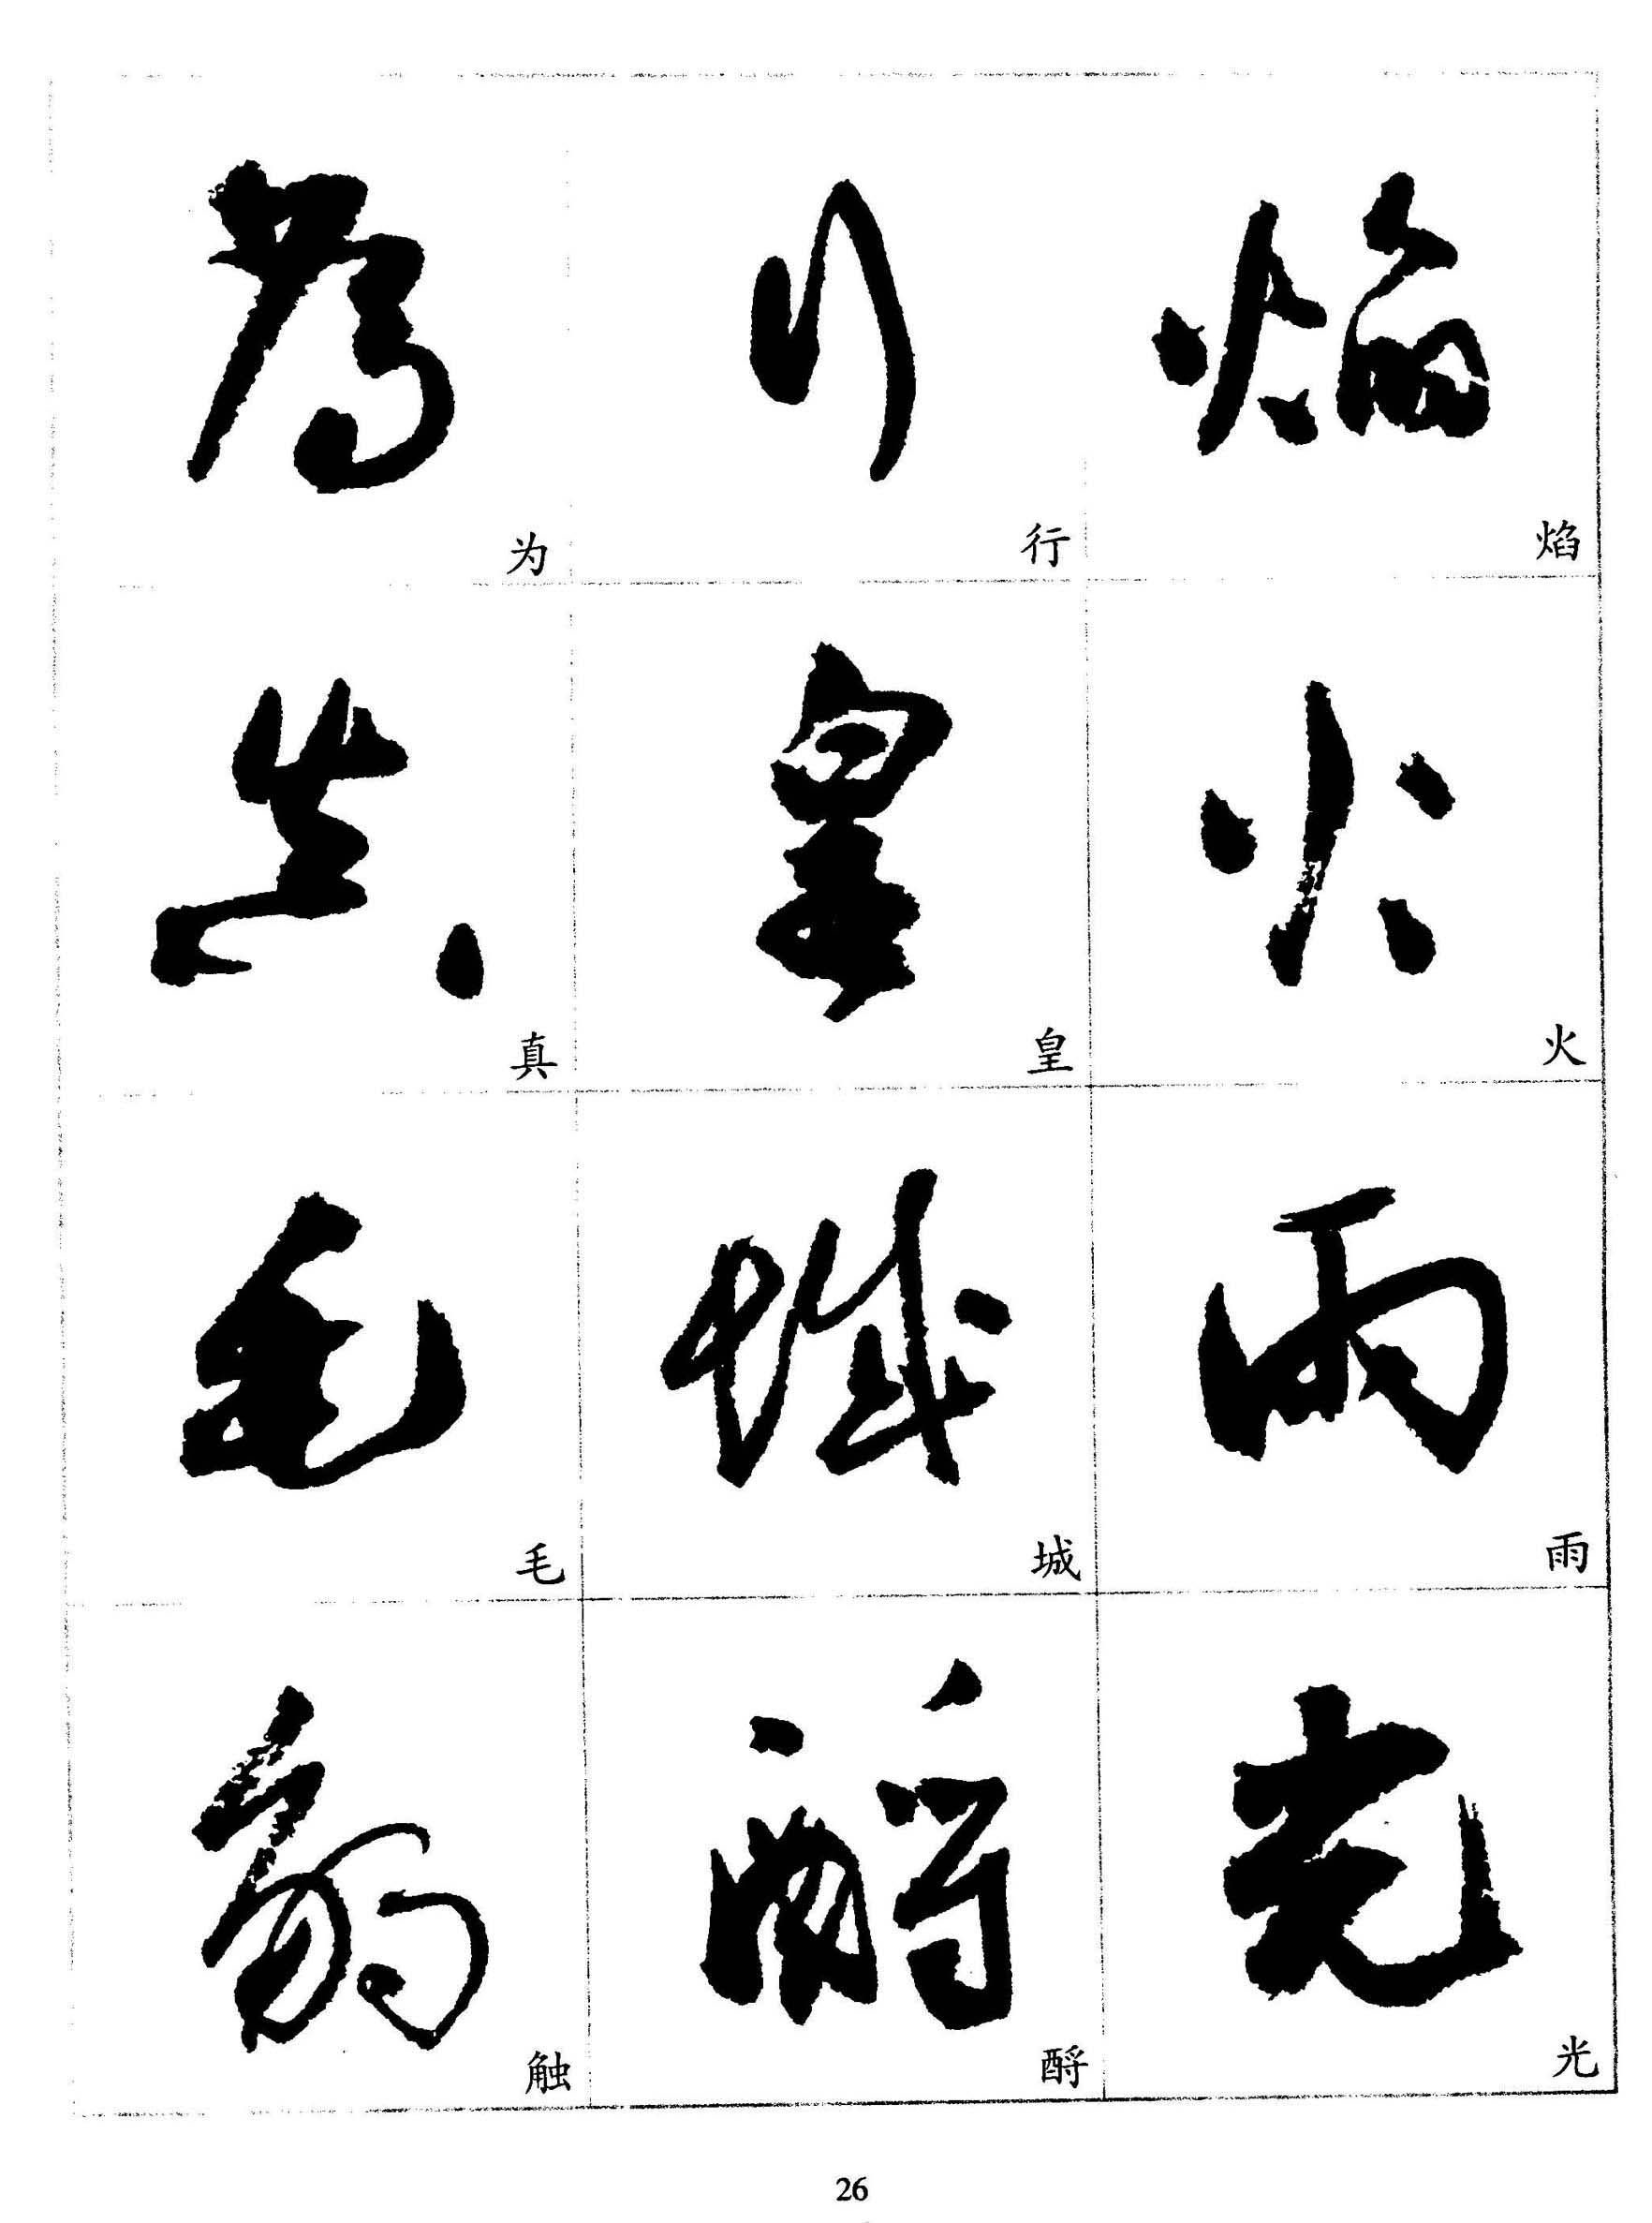 焰
火
雨
光
行
皇
城
酹
为
真
毛
触
26